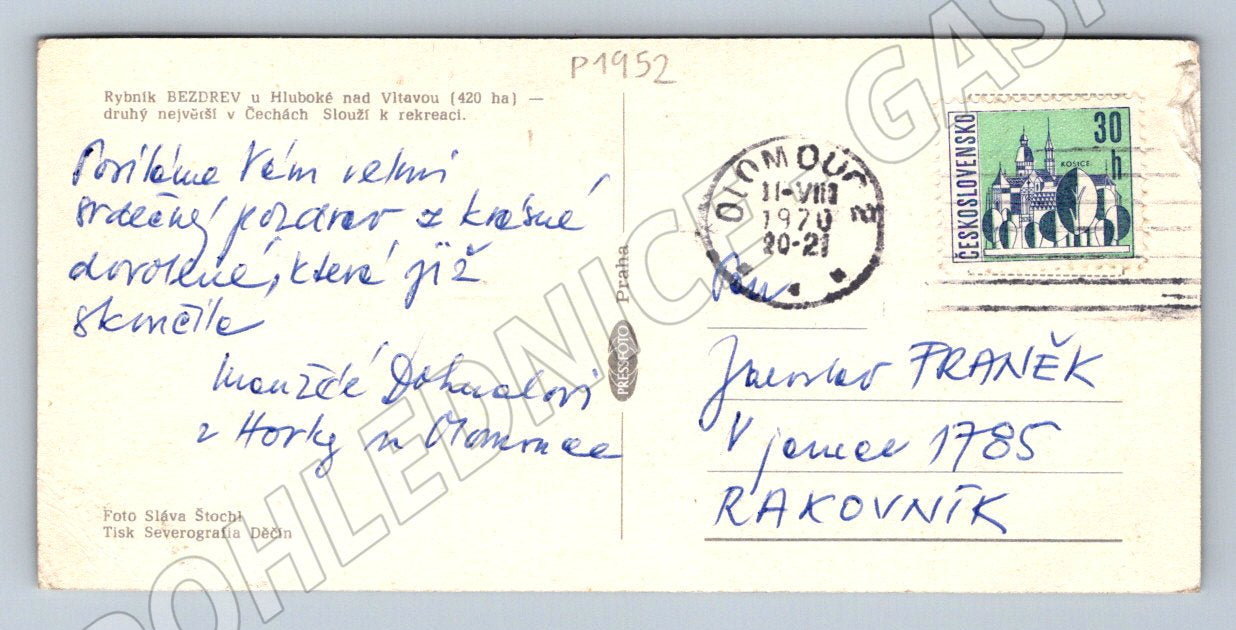 P1952
Rybník BEZDREV u Hluboké nad Vltavou (420 ha) —
druhý největší v Čechách Slouží k rekreaci.
Posíláme Vám velmi
srdečný pozdrav z krásné
dovolené, která již
skončila
Manželé Dohnalovi
z Horky u Olomouce
Foto Sláva Štochl
Tisk Severografia Děčín
Praha
PRESSFOTO
OLOMOUC 2
11-VIII
1970
20-21
ČESKOSLOVENSKO
30
h
KOŠICE
Pan
Jaroslav FRANĚK
V jamce 1785
RAKOVNÍK
POHLEDNICE GASP